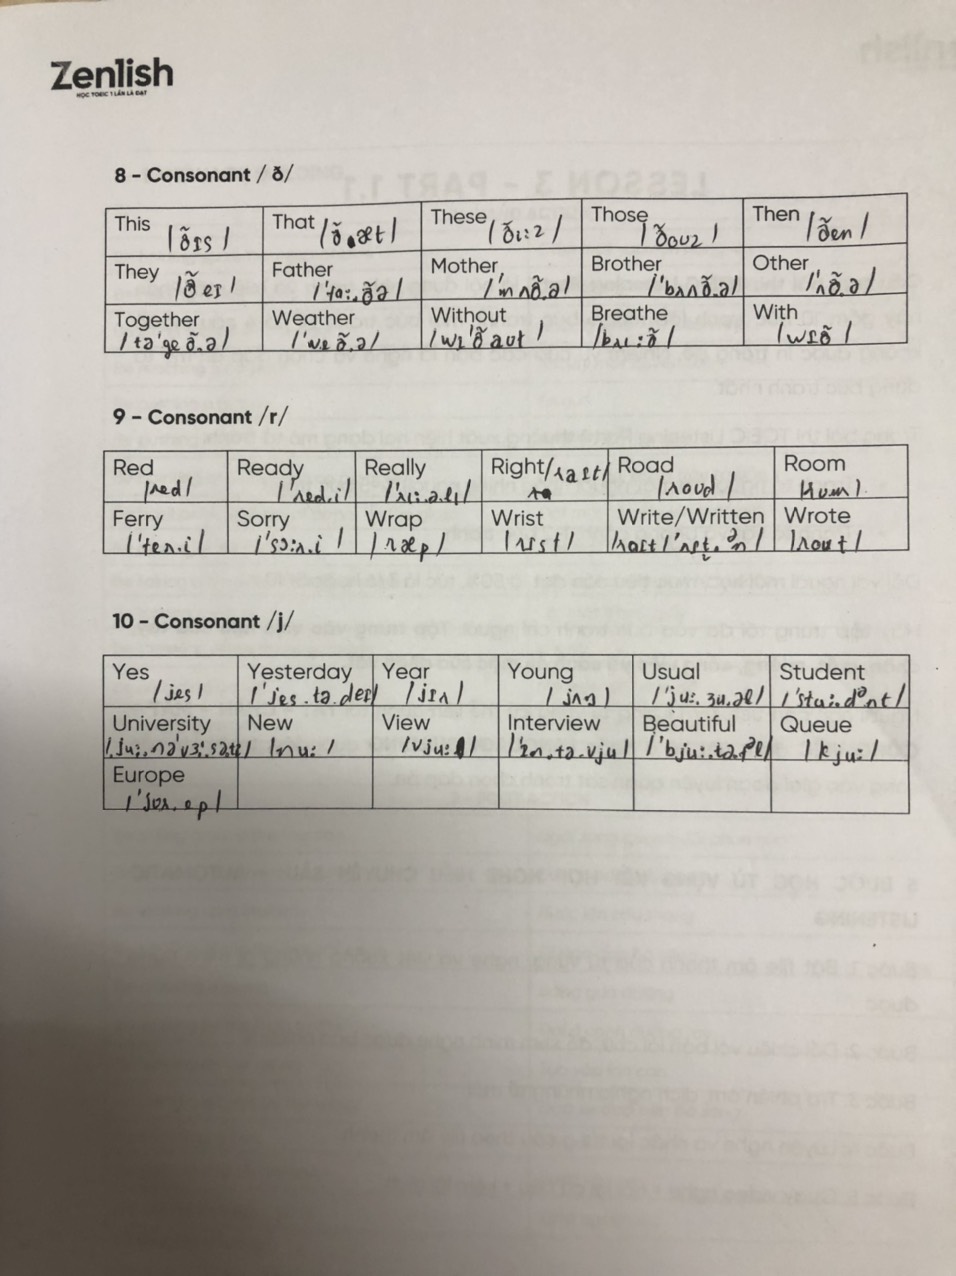 Zenlish
HỌC TOEIC 1 LẦN LÀ ĐẠT
8 - Consonant / ð/
This /ðɪs / That /ð.æt/ These /ðɪ:z / Those /ðoʊz / Then /ðen /
They /ðeɪ / Father /ˈfɑ:.ðə/ Mother /ˈmʌð.ə/ Brother /ˈbrʌð.ə/ Other /ˈʌð.ə /
Together / təˈɡeð.ə/ Weather / ˈweð.ə/ Without /wɪˈðaʊt / Breathe /brɪ:ð / With /wɪð /
9 - Consonant /r/
Red /red/ Ready /ˈred.i/ Really /ˈrɪ:.ə.lɪ/ Right /raɪt/ Road /roʊd / Room
Ferry /ˈfer.i/ Sorry /ˈsɔ:r.i / Wrap /ræp/ Wrist /rɪst/ Write/Written Wrote /roʊt/
10 - Consonant /j/
Yes /jes / Yesterday /ˈjes.tə.deɪ/ Year /jɪr / Young / jʌŋ/ Usual /ˈju:.ʒu.əl/ Student /ˈstu:.dənt /
University New /nu: / View /vju: / Interview /ˈɪn.tə.vju/ Beautiful /ˈbju:.tə.fəl/ Queue /kju:/
Europe /ˈjʊr.əp/